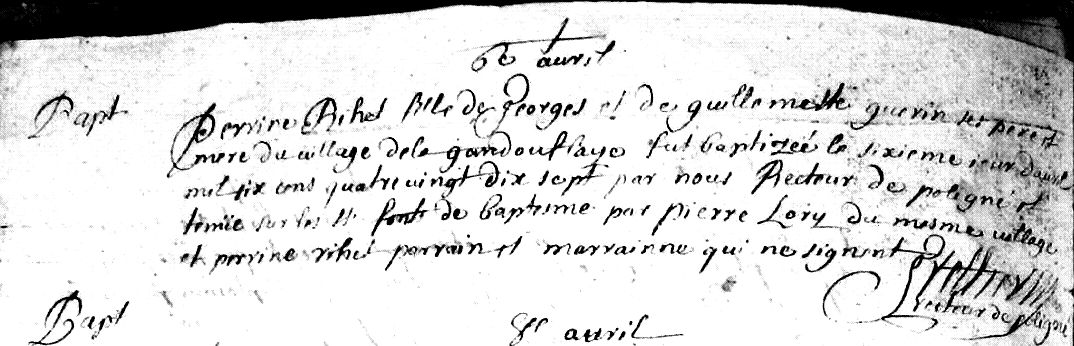 6e auril
Bapt
Perrine Rihet fille de Georges et de guillemette guerin ses pere et
mere du village de la gandouflaye fut baptizeé le sixieme iour dauril
mil six cens quatre vingt dix sept par nous Recteur de poligné et
tenüe sur les st fonts de baptesme par pierre Lory du mesme village
et perrine rihet parrain et marrainne qui ne signent
recteur de poligné
Bapt
8e auril